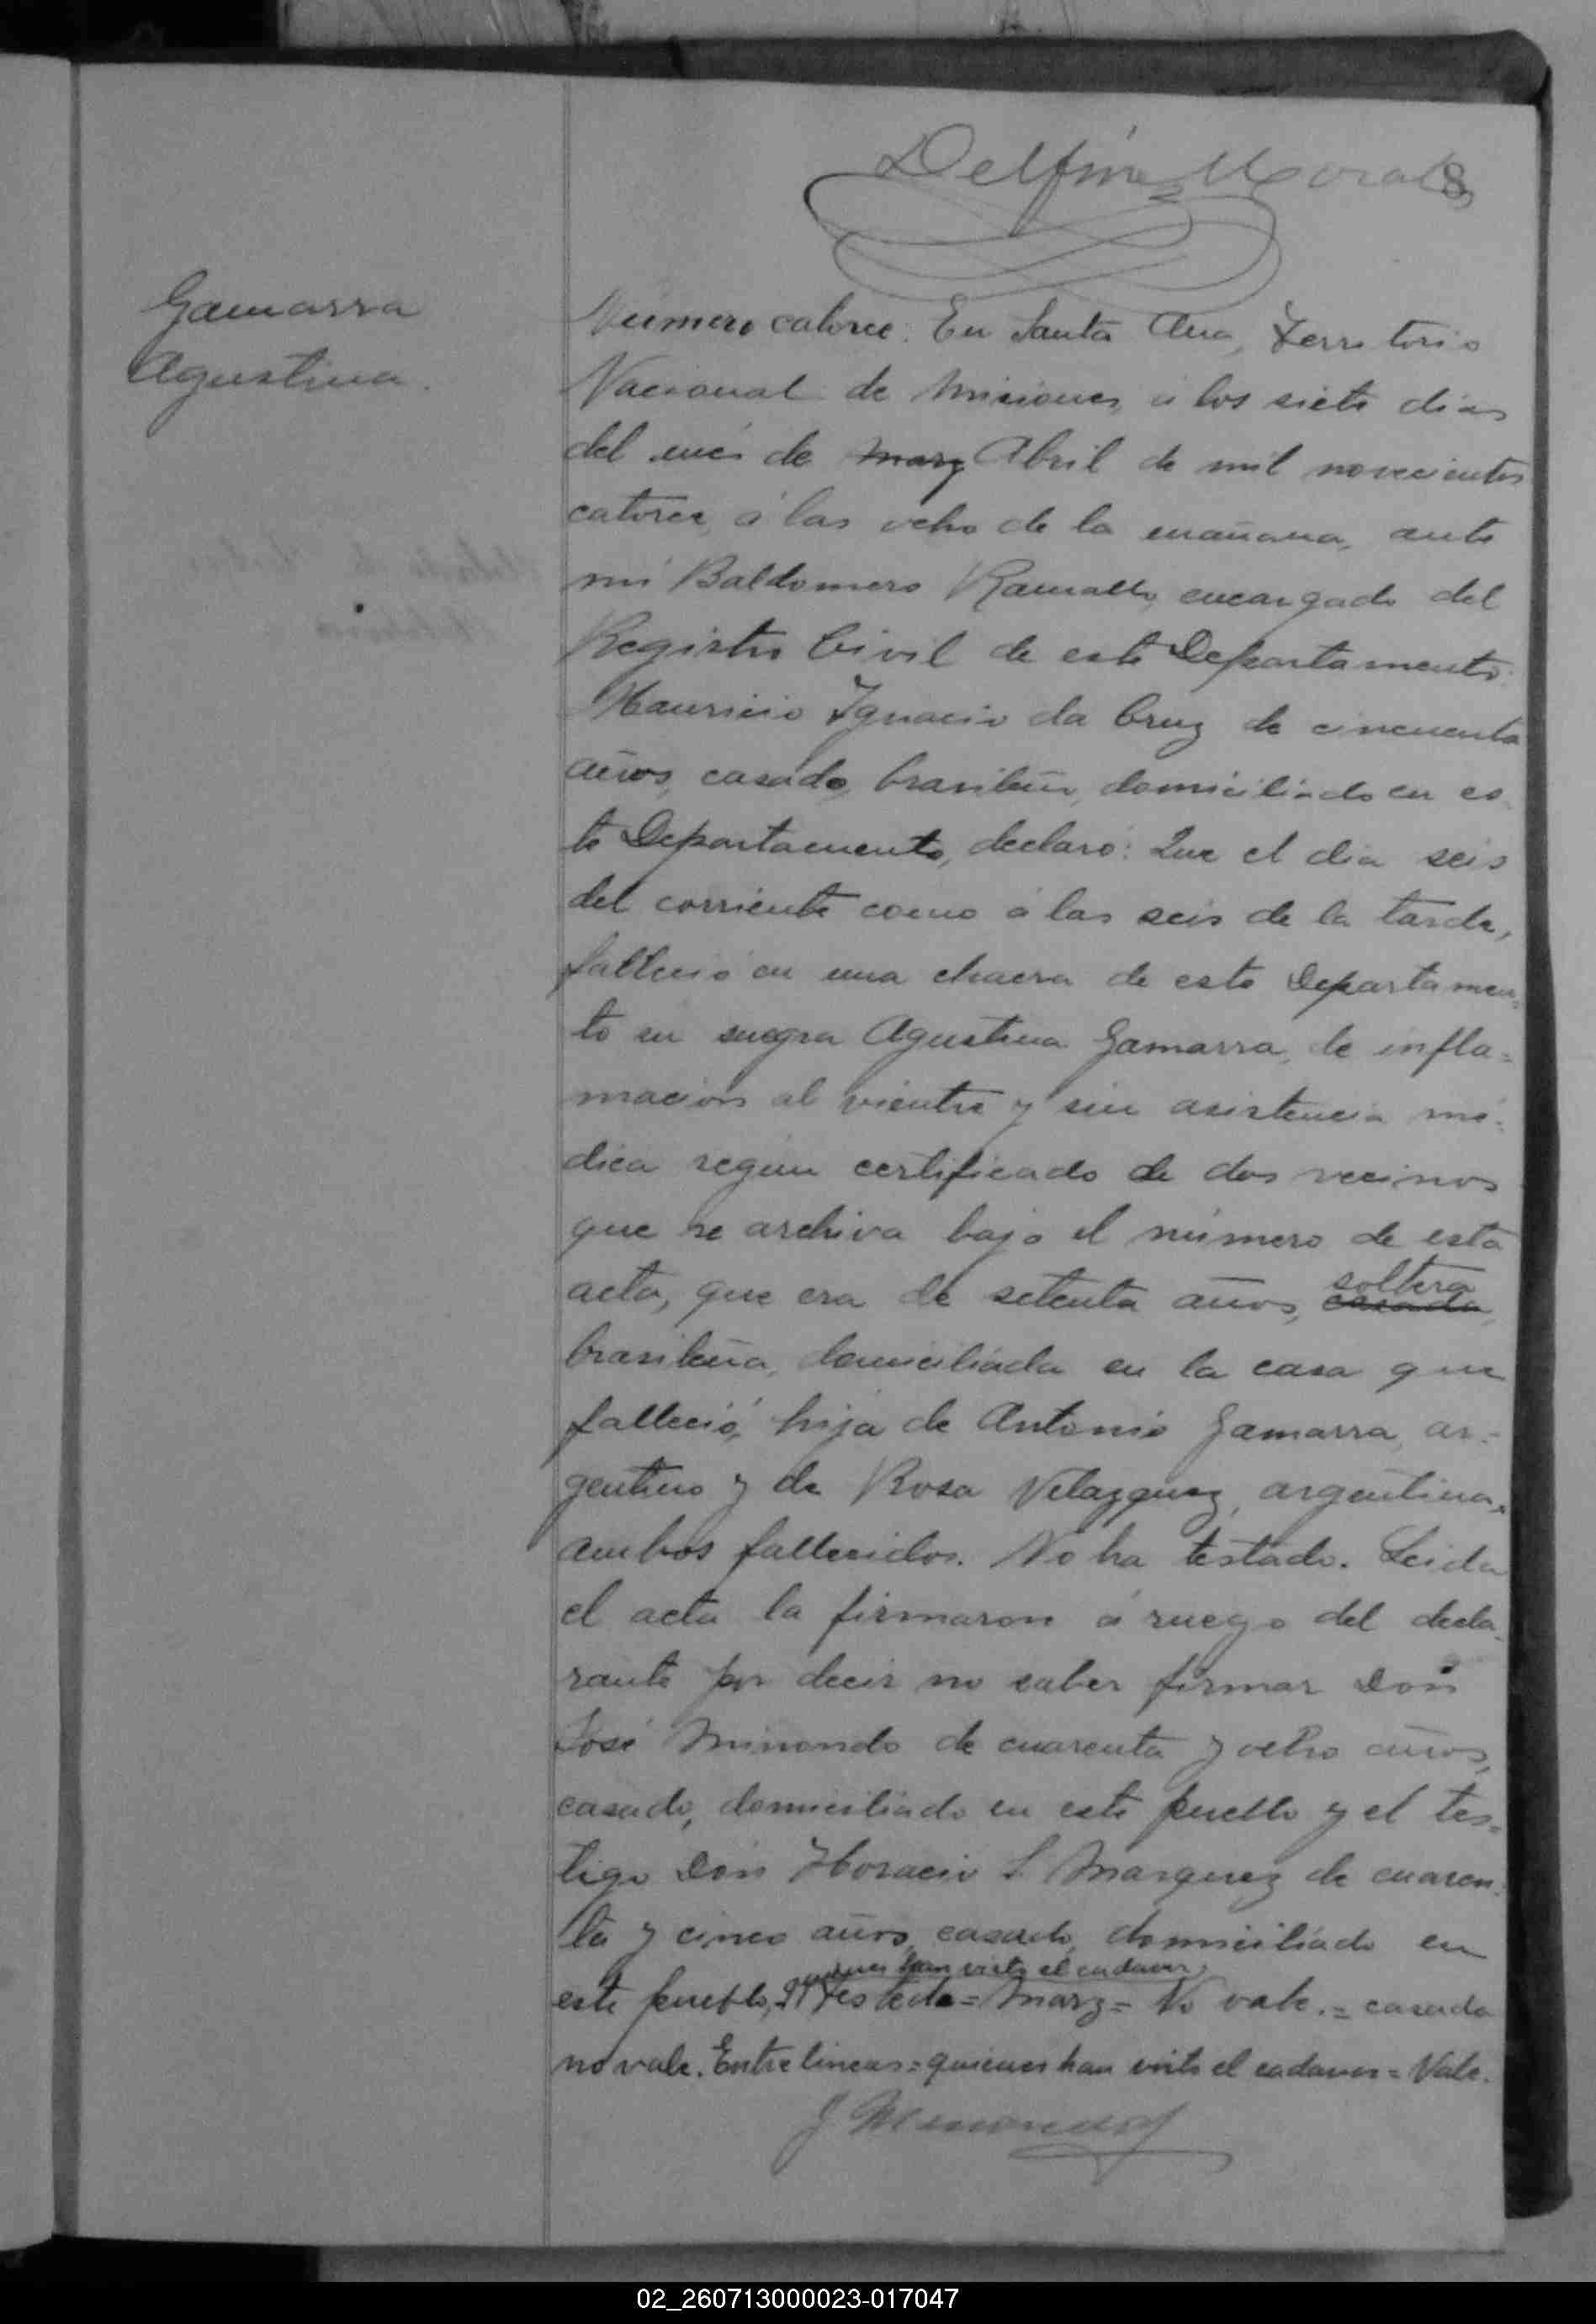 Delfin Morales
8
Gamarra
Agustina.
Número catorce: En Santa Ana, Territorio
Nacional de Misiones, á los siete dias
del més de marz Abril de mil novecientos
catorce, á las ocho de la mañana, ante
mi Baldomero Ramallo, encargado del
Registro Civil de este Departamento:
Mauricio Ignacio da Cruz de cincuenta
años, casado, brasileño, domiciliado en es
te Departamento, declaró: Que el dia seis
del corriente como á las seis de la tarde,
falleció en una chacra de este Departamen=
to su suegra Agustina Gamarra, de infla=
macion al vientre y sin asistencia mé=
dica según certificado de dos vecinos
que se archiva bajo el número de esta
acta, que era de setenta años, casada soltera,
brasileña, domiciliada en la casa que
falleció, hija de Antonio Gamarra, ar=
gentino y de Rosa Velazquez, argentina,
ambos fallecidos. No ha testado. Leida
el acta la firmaron á ruego del decla=
rante por decir no saber firmar Don
José Minondo de cuarenta y ocho años,
casado, domiciliado en este pueblo y el tes=
tigo Don Horacio L. Marquez de cuaren=
ta y cinco años, casado, domiciliado en
quienes han visto el cadaver.
este pueblo, Testado = Marz = No vale. = casada
no vale. Entre lineas = quienes han visto el cadaver = Vale.
J Minondo
02_260713000023-017047